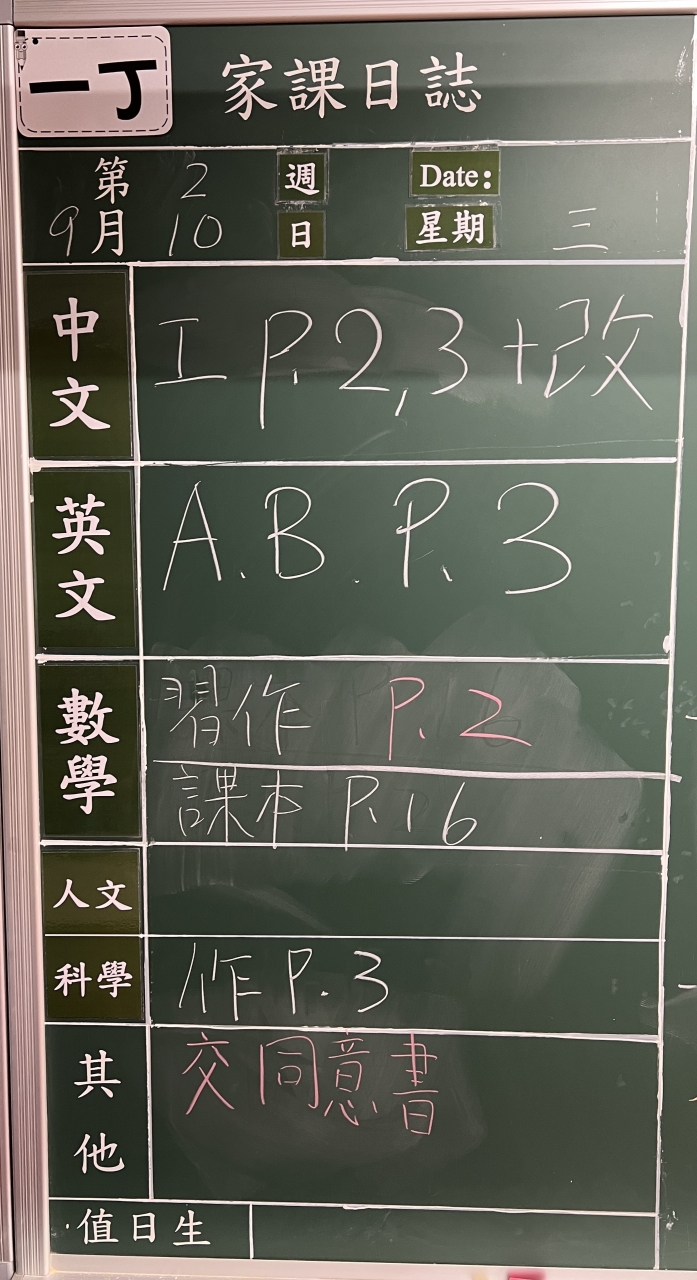 一丁
家課日誌
第 2 週 Date:
9月 10 日 星期 三
中文 工 P. 2, 3 + 改
英文 A.B. P. 3
數學 習作 P. 2
課本 P. 16
人文
科學 作 P. 3
其他 交同意書
值日生